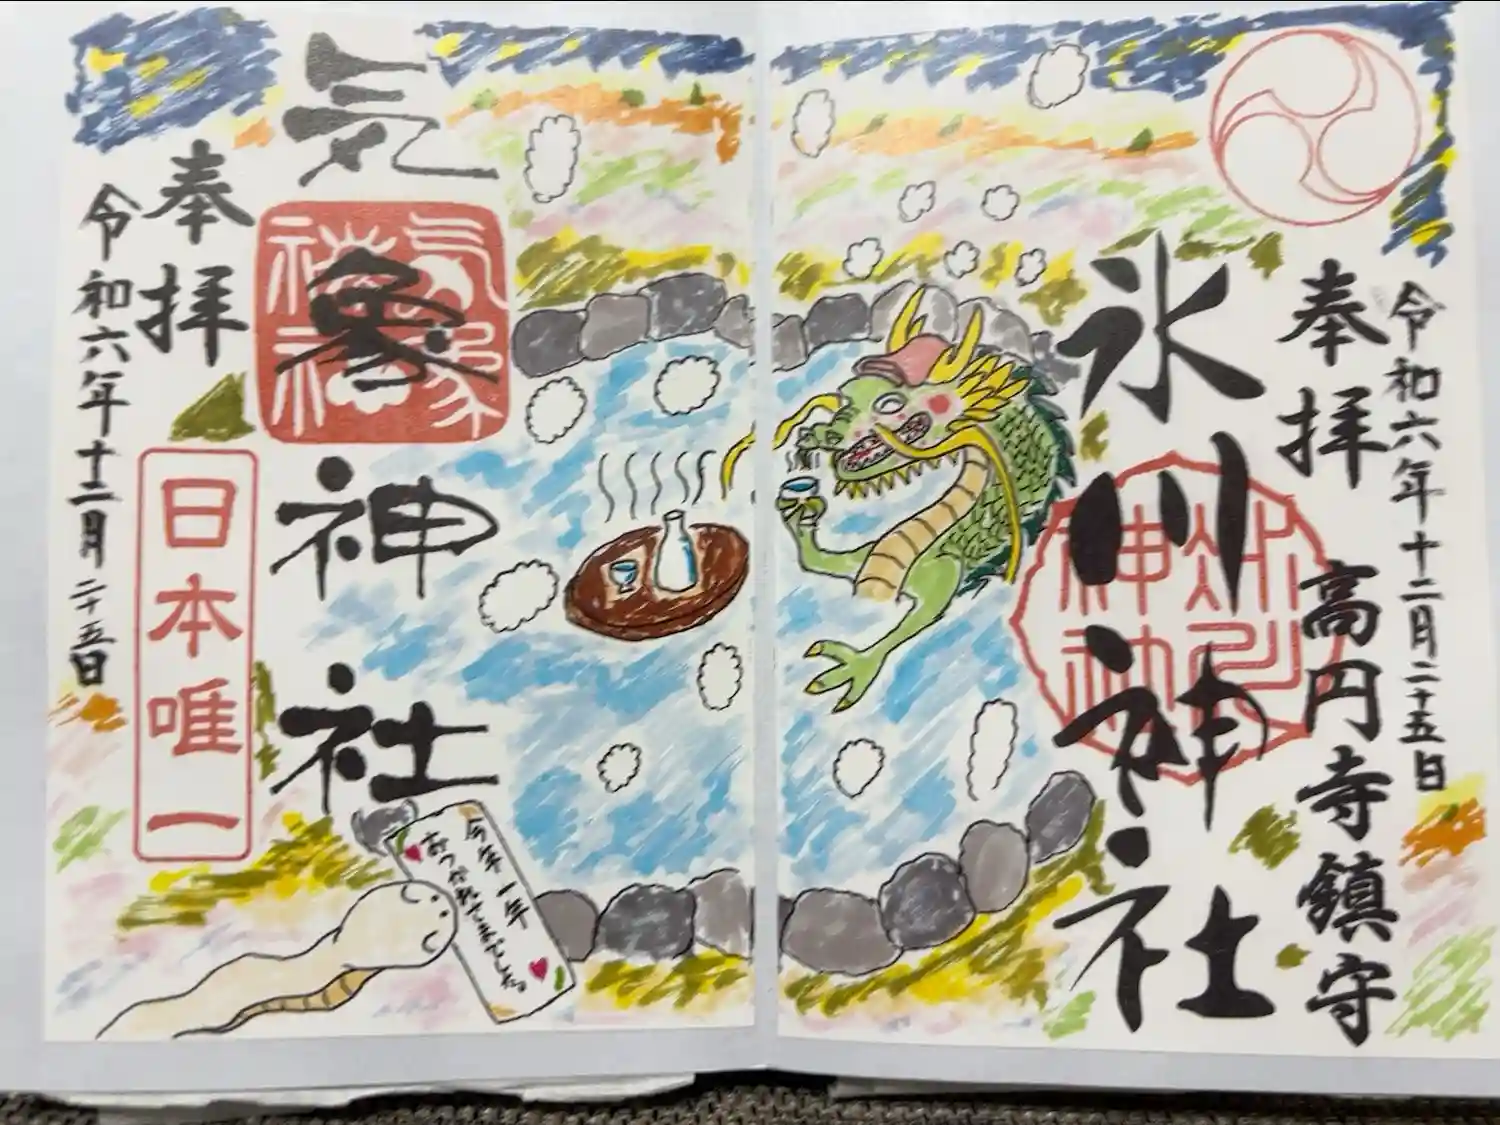 令和六年十二月二十五日
奉拝
高円寺鎮守
氷川神社
気象神社
気象神社
奉拝
日本唯一
令和六年十二月二十五日
今年一年
おつかれさまでした。